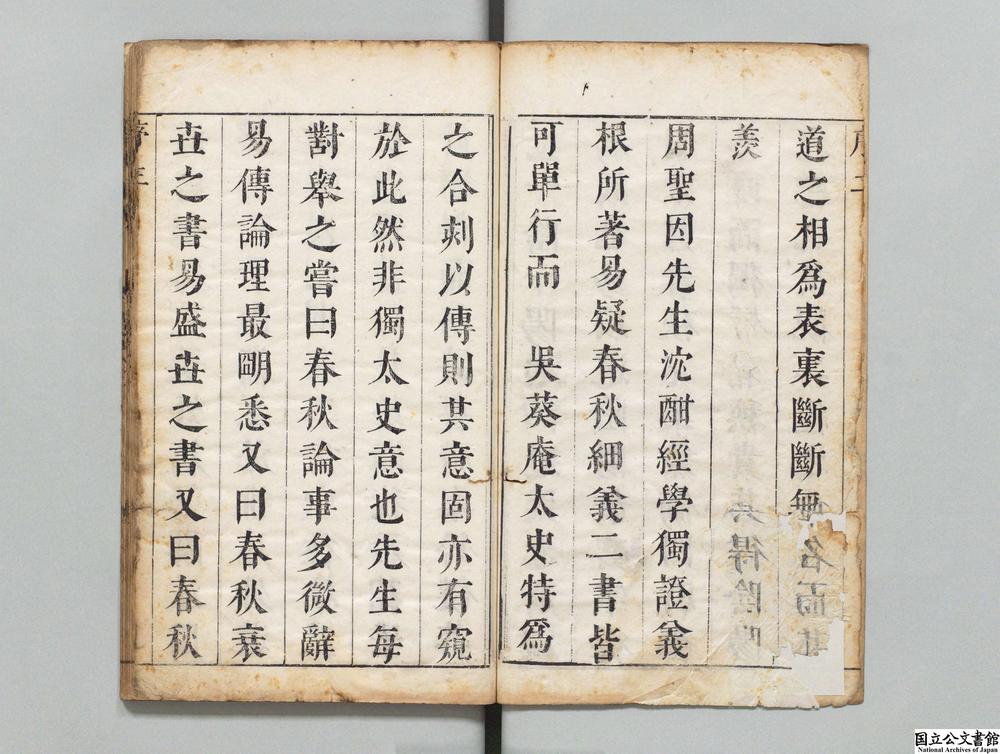 序二
道之相爲表裏斷斷無
羨
周聖因先生沈酣經學獨證義
根所著易疑春秋細義二書皆
可單行而 吳葵庵太史特爲
之合刻以傳則其意固亦有窺
於此然非獨太史意也先生每
對舉之嘗曰春秋論事多微辭
易傳論理最明悉又曰春秋衰
世之書易盛世之書又曰春秋
序三
国立公文書館
National Archives of Japan